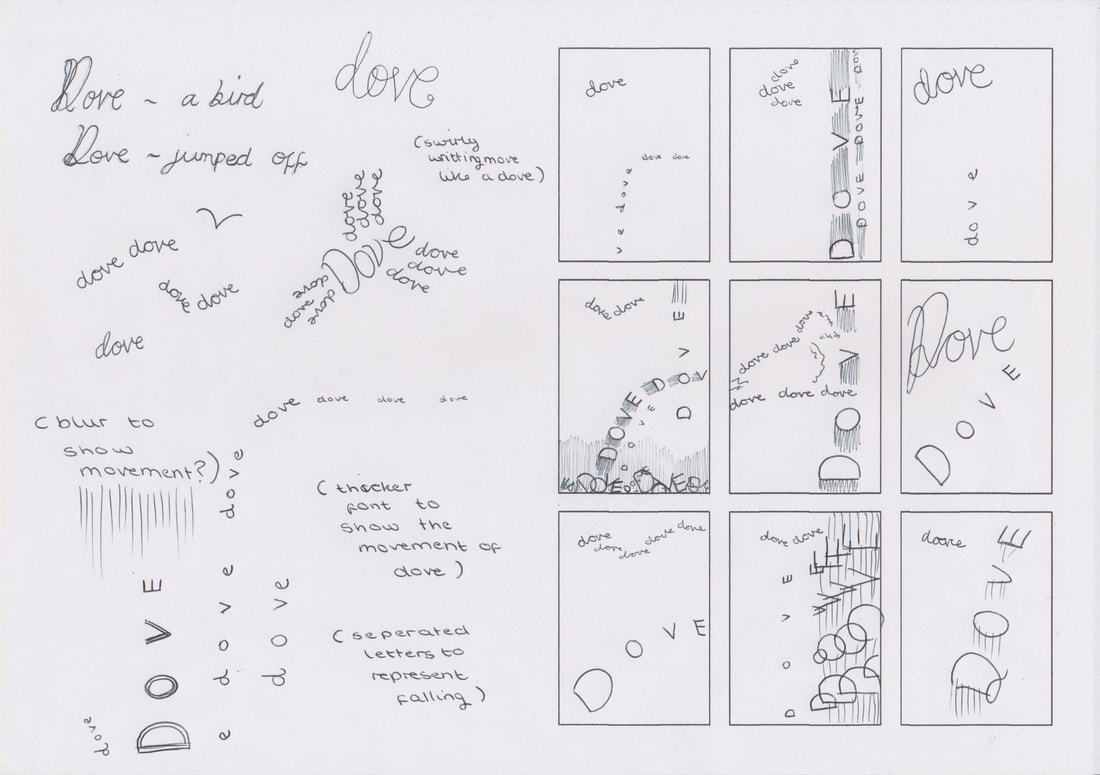 Dove ~ a bird
dove
Dove ~ jumped off
(swirly
writting move
like a dove)
dove dove dove
Dove
dove
dove
dove
dove dove dove
dove dove
dove dove
dove
(blur to
show
movement?)
dove dove dove dove
dove
(thicker
font to
show the
movement of
dove)
DOVE
dove
dove
dove
e
(seperated
letters to
represent
falling)
dove
dove dove
dove
ve
dove
dove
dove
DOVE
DOVE DOVE DOVE
dove
dove
dove dove
DOVE
DOVE
DOV
dove dove dove
dove dove dove
DOVE
Dove
DOVE
dove dove
dove dove dove
DOVE
dove dove
DOVE
DOVE